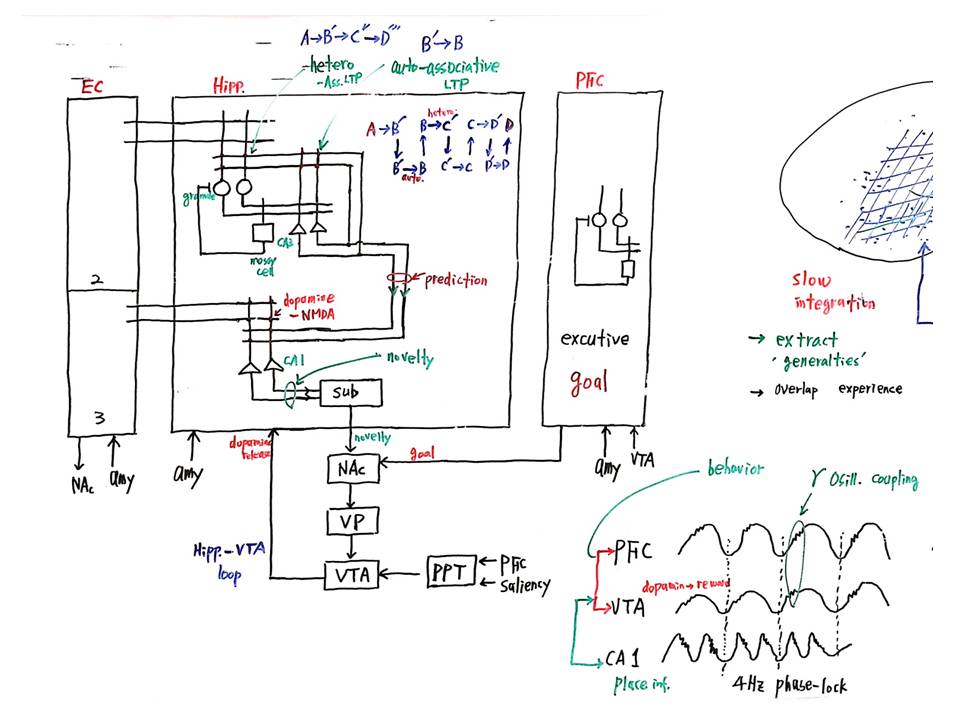 A→B′→C″→D‴ B′→B
hetero
-Ass.LTP
auto-associative
LTP
EC
Hipp.
PFC
hetero.
A→B′ B→C′ C→D′ D
B′→B C′→C D′→D
auto.
granule
mossy
cell
CA3
2
prediction
dopamine
-NMDA
slow
integration
→ extract
'generalties'
→ overlap experience
excutive
goal
CA1
novelty
sub
3
NAc
amy
amy
dopamine
release
novelty
goal
amy
VTA
NAc
VP
VTA
Hipp.-VTA
loop
PPT
PFC
saliency
behavior
γ Osill. coupling
PFC
dopamin→reward
VTA
CA1
place inf.
4Hz phase-lock